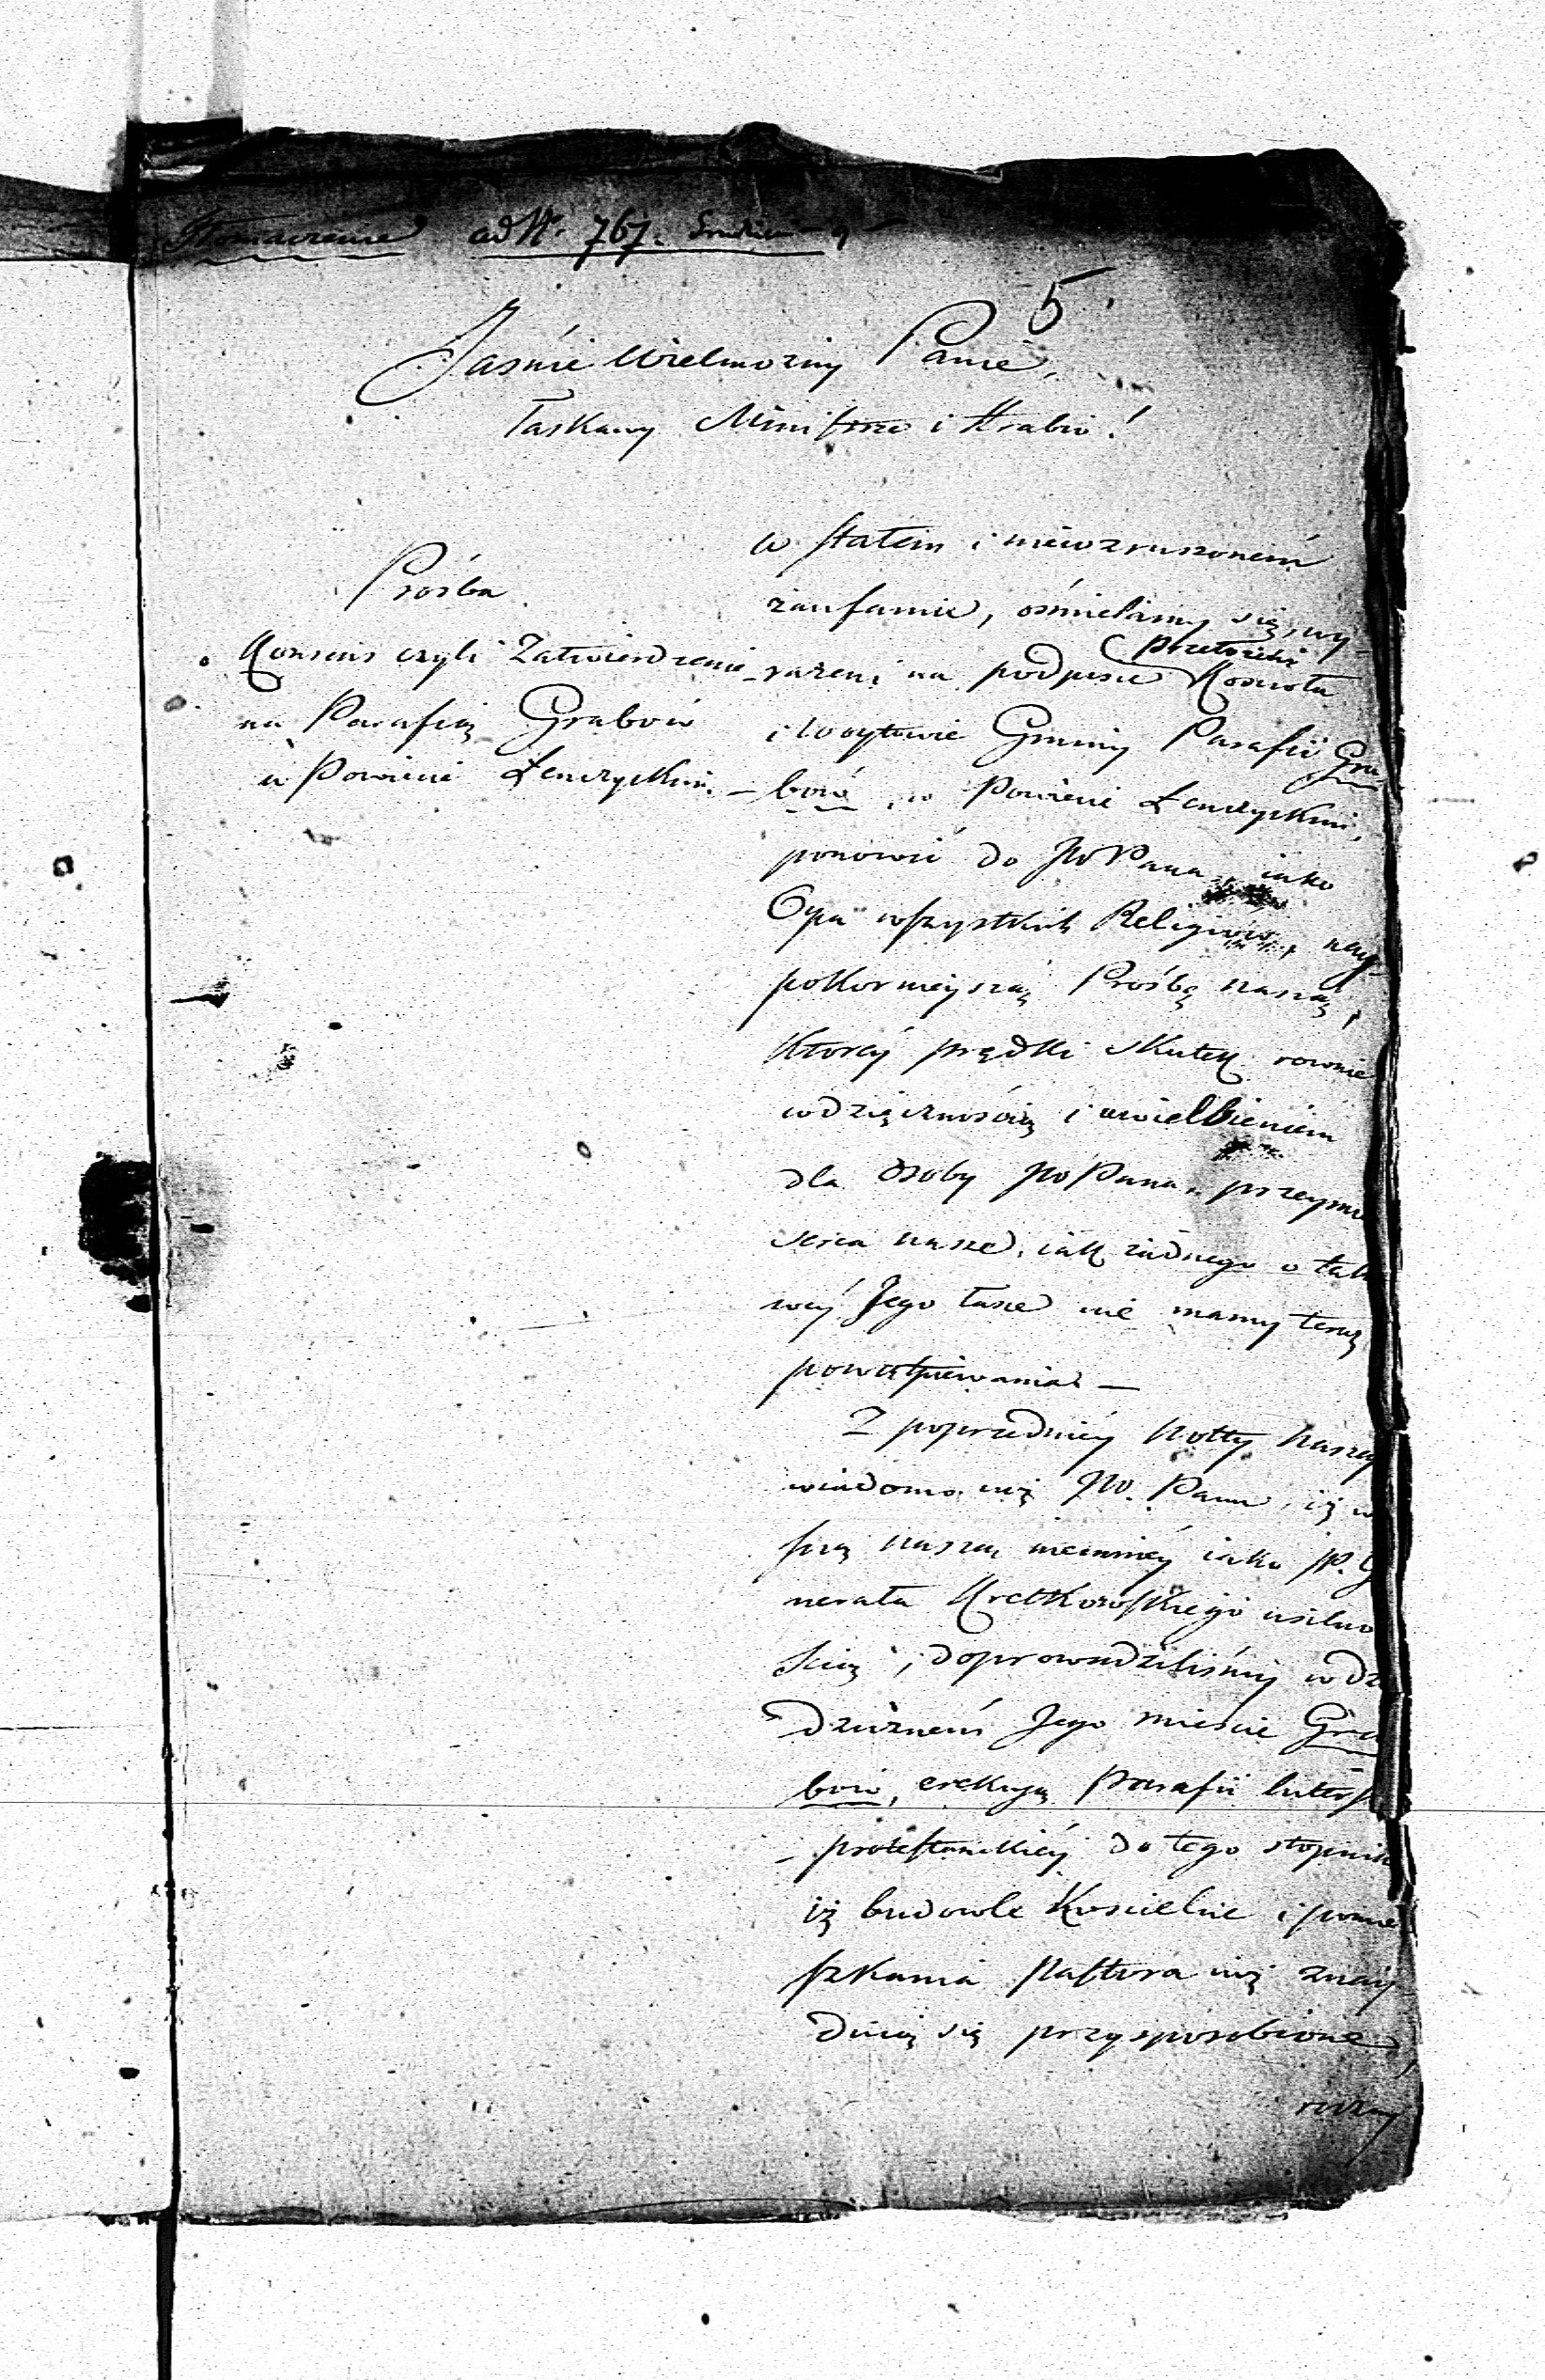 Tłomaczenie ad N. 767.
5.
Jaśnie Wielmożny Panie,
Łaskawy Ministrze i Hrabio!
Prośba
o Konsens czyli Zatwierdzenie
na Parafią Grabów
w Powiecie Łenczyckim.
w stałem i niewzruszoném
zaufanie, ośmielamy się, wy-
przełożeni
rażeni na podpisie Kościoła
i Woytowie Gminy Parafii Gra-
bów, w Powiecie Łenczyckim,
ponowić do JWPana, iako
Oyca wszystkich Religiów, nay-
pokornieyszą Prośbę naszą,
któréy prędki skutek rownie
wdzięcznością i uwielbieniem
dla Osoby JWPana, przeymie
serca nasze, iak żadnego o tak
wéy Jego łasce nie mamy teraz
powątpiewania —
Z poprzedniéy Notty naszey
wiadomo iuż JW. Panu, iż w
szą naszą niemniéy iako JP. G
nerała Kretkowskiego usilno
ścią, doprowadziliśmy w dzie
dzicznem Jego mieście Gra
bów, erekcyą Parafii luters
protestanckiéy do tego stopnia
iż budowle Kościelne i pomie
szkania Pastora iuż znay
duią się przysposobione,